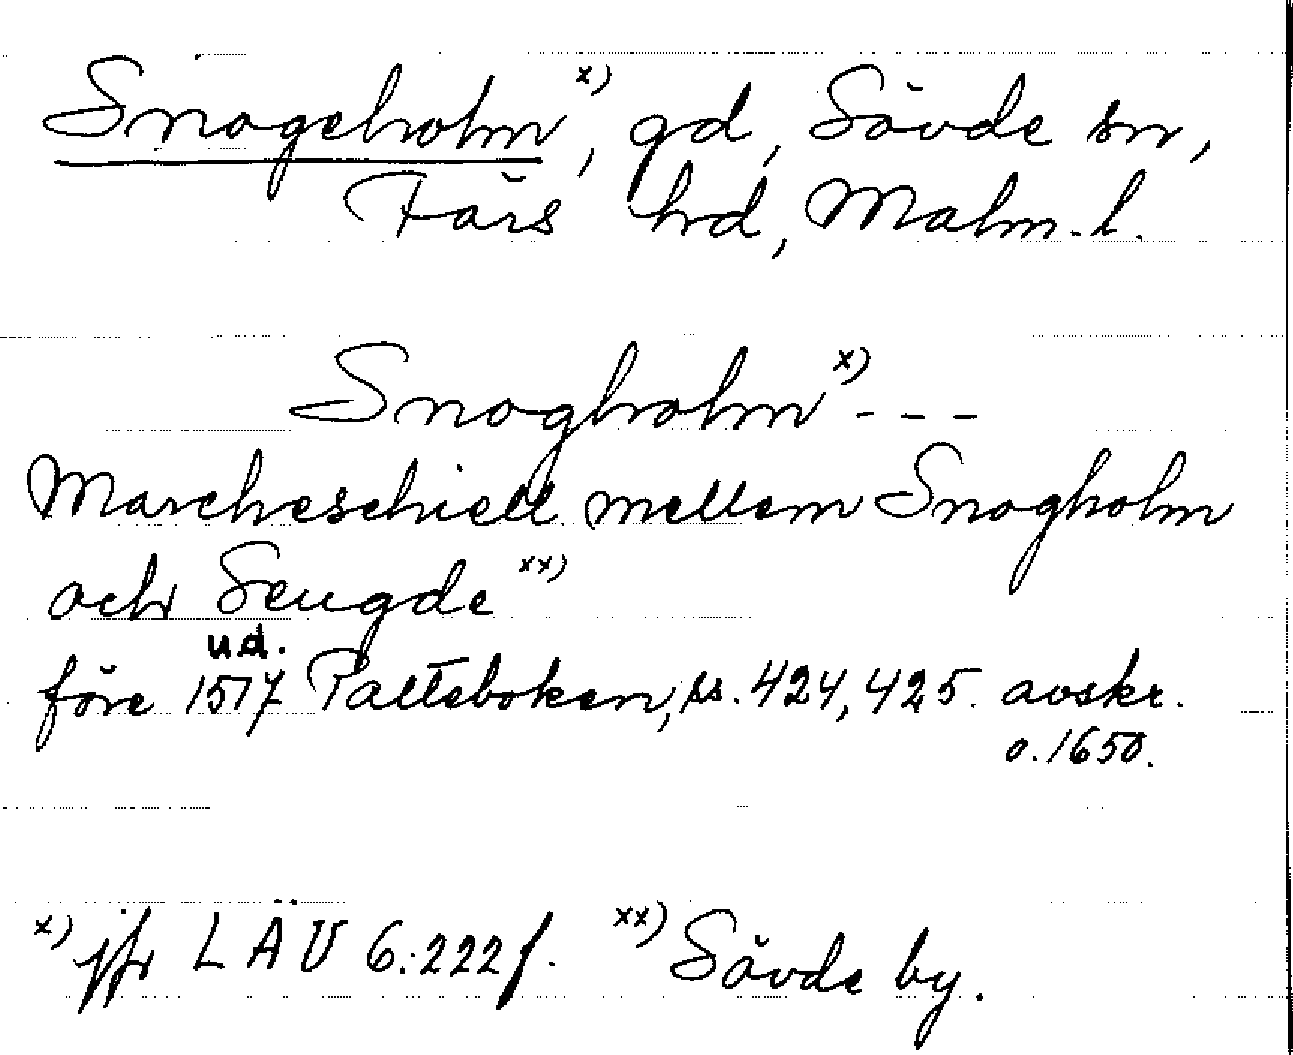 Snogeholm x), gd, Sövde sn,
Färs hrd, Malm. l.
Snogholm x) - - -
Marcheschiell mellem Snogholm
och Seugde xx)
u.d.
före 1517 Palteboken, ss. 424, 425. avskr.
o. 1650.
x) jfr LÄU 6:222f. xx) Sövde by.